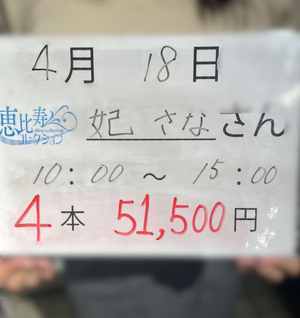 4月 18日
恵比寿
コレクション
妃 さな さん
10:00 ～ 15:00
4本 51,500円